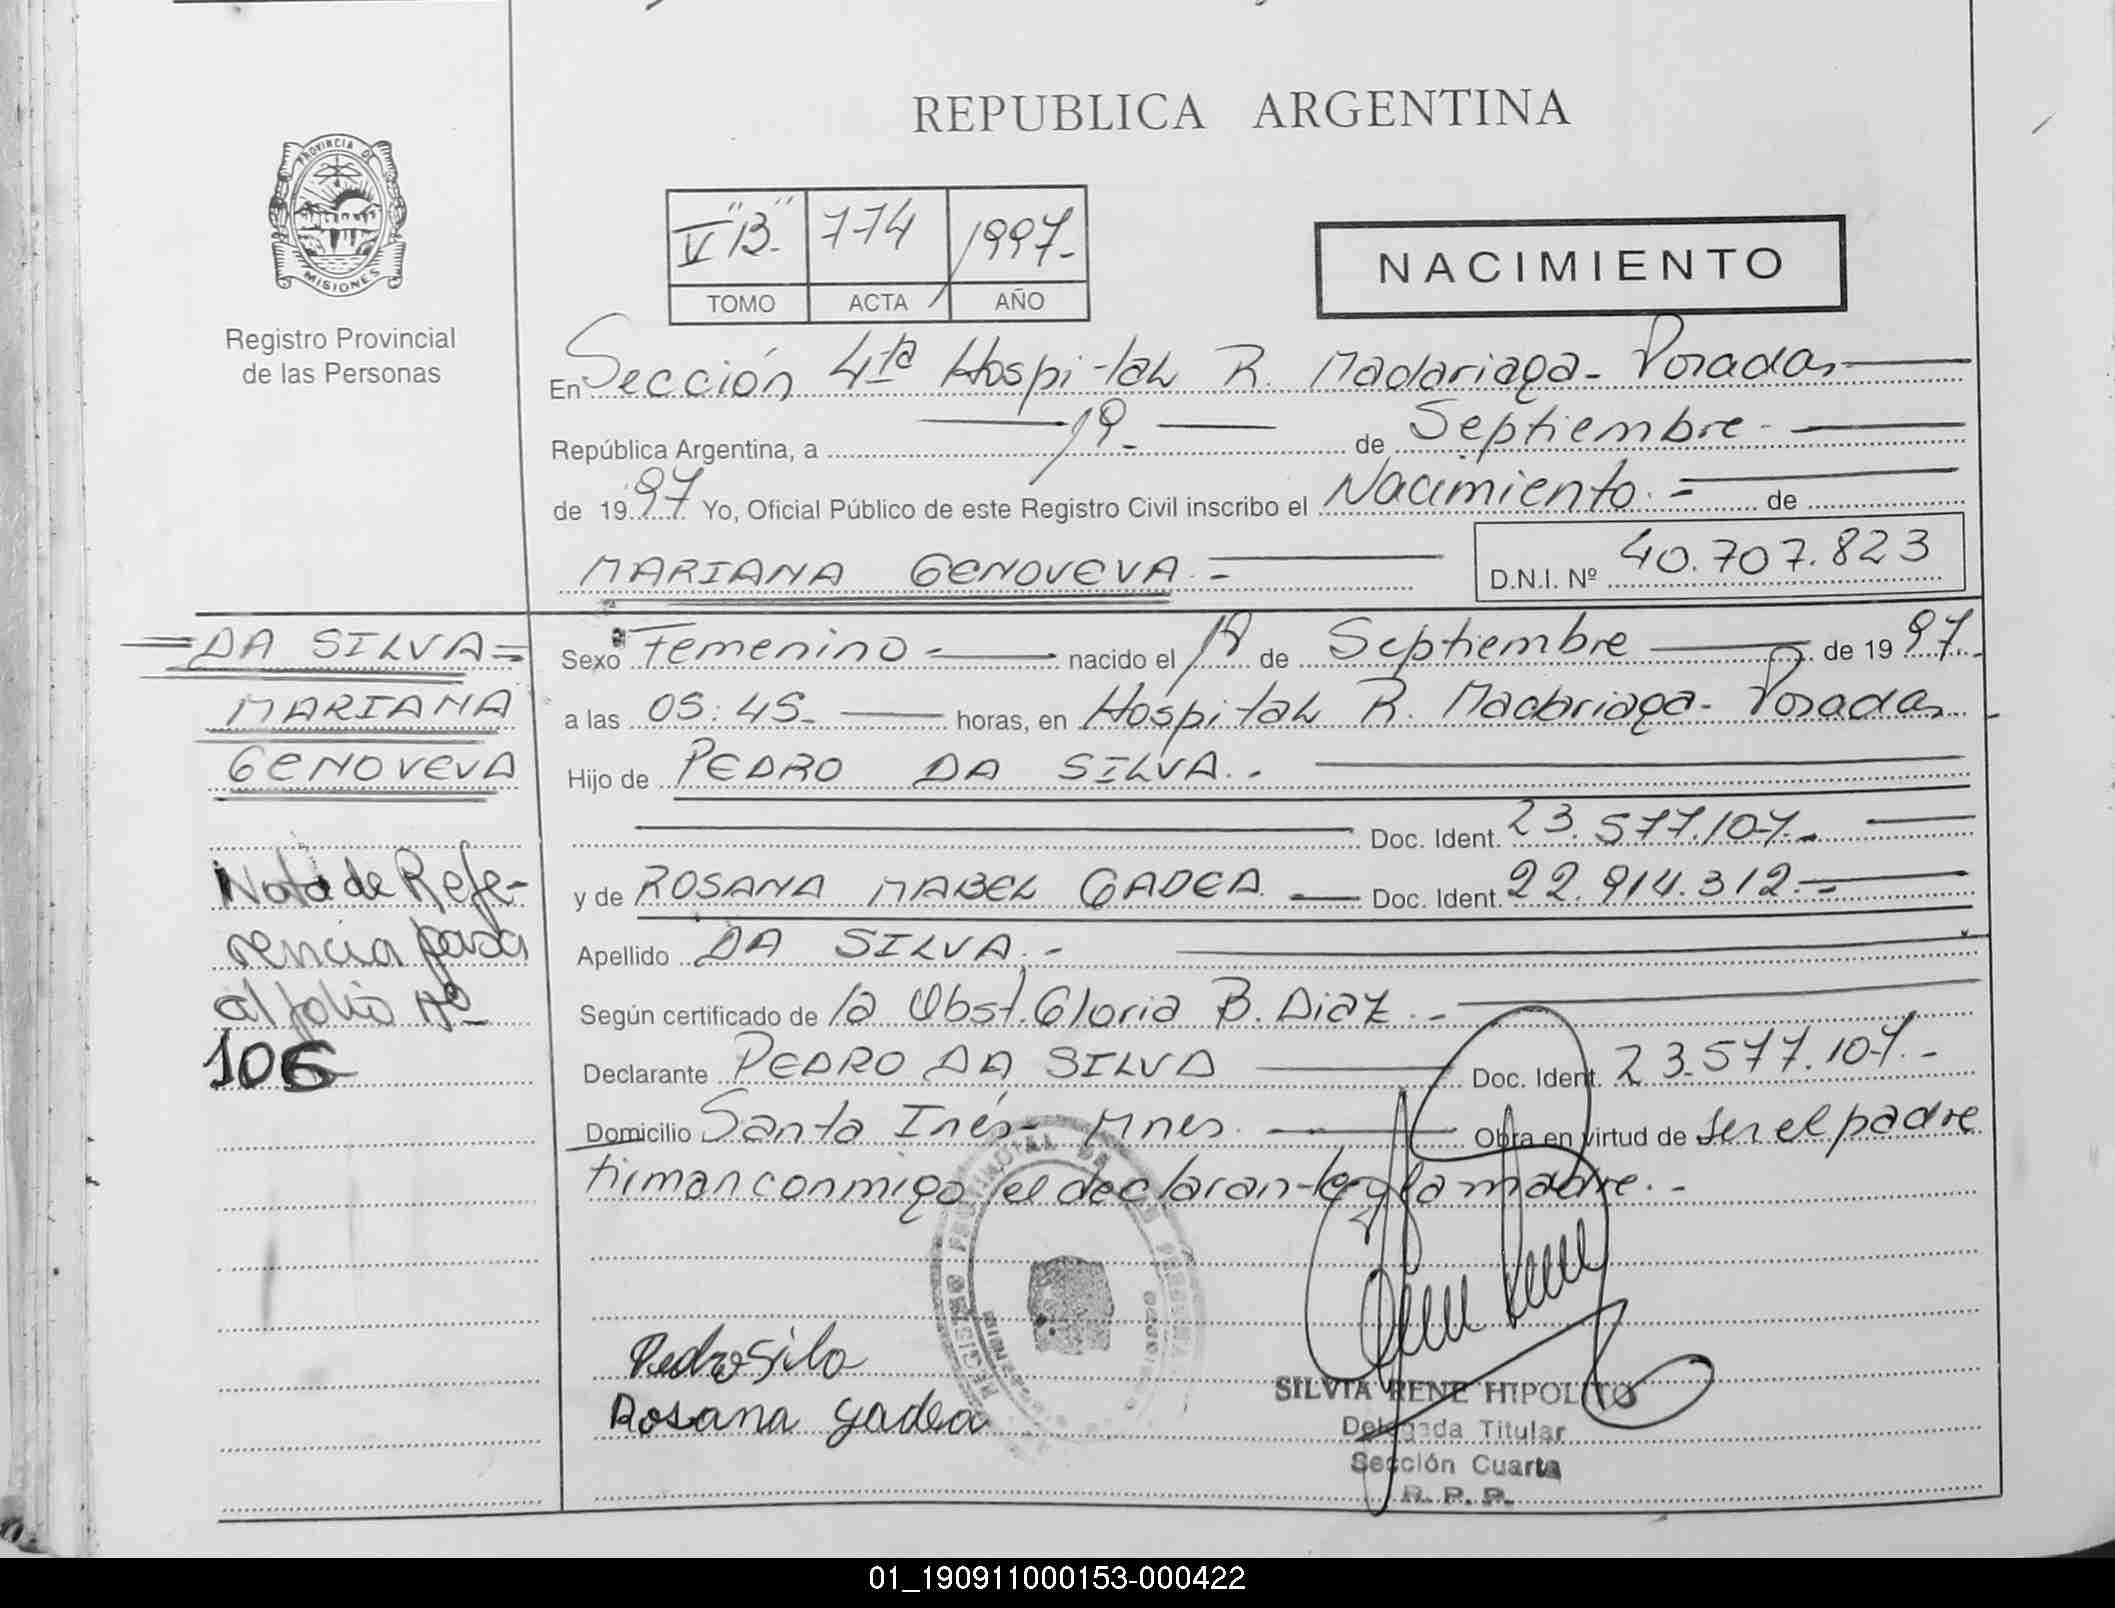 REPUBLICA ARGENTINA
PROVINCIA DE
MISIONES
Registro Provincial
de las Personas
V "B"- 774 1997-
TOMO ACTA AÑO
NACIMIENTO
En Sección 4ta Hospital R. Madariaga - Posadas
República Argentina, a 19- de Septiembre -
de 1997 Yo, Oficial Público de este Registro Civil inscribo el Nacimiento - de
MARIANA GENOVEVA.- D.N.I. Nº 40.707.823
DA SILVA
MARIANA
GENOVEVA
Nota de Refe-
rencia pasa
al folio Nº
106
Sexo Femenino - nacido el de Septiembre de 1997.
a las 05:45- horas, en Hospital R. Madariaga - Posadas
Hijo de PEDRO DA SILVA.-
Doc. Ident. 23.577.107.-
y de ROSANA MABEL GADEA.- Doc. Ident. 22.914.312.-
Apellido DA SILVA.-
Según certificado de la Obst. Gloria B. Diaz.-
Declarante PEDRO DA SILVA Doc. Ident. 23.577.107.-
Domicilio Santa Inés - Mnes. Obra en virtud de ser el padre
firman conmigo el declarante y la madre.-
Pedro Silva
Rosana gadea
SILVIA RENE HIPOLITO
Delegada Titular
Sección Cuarta
R. P. P.
01_190911000153-000422